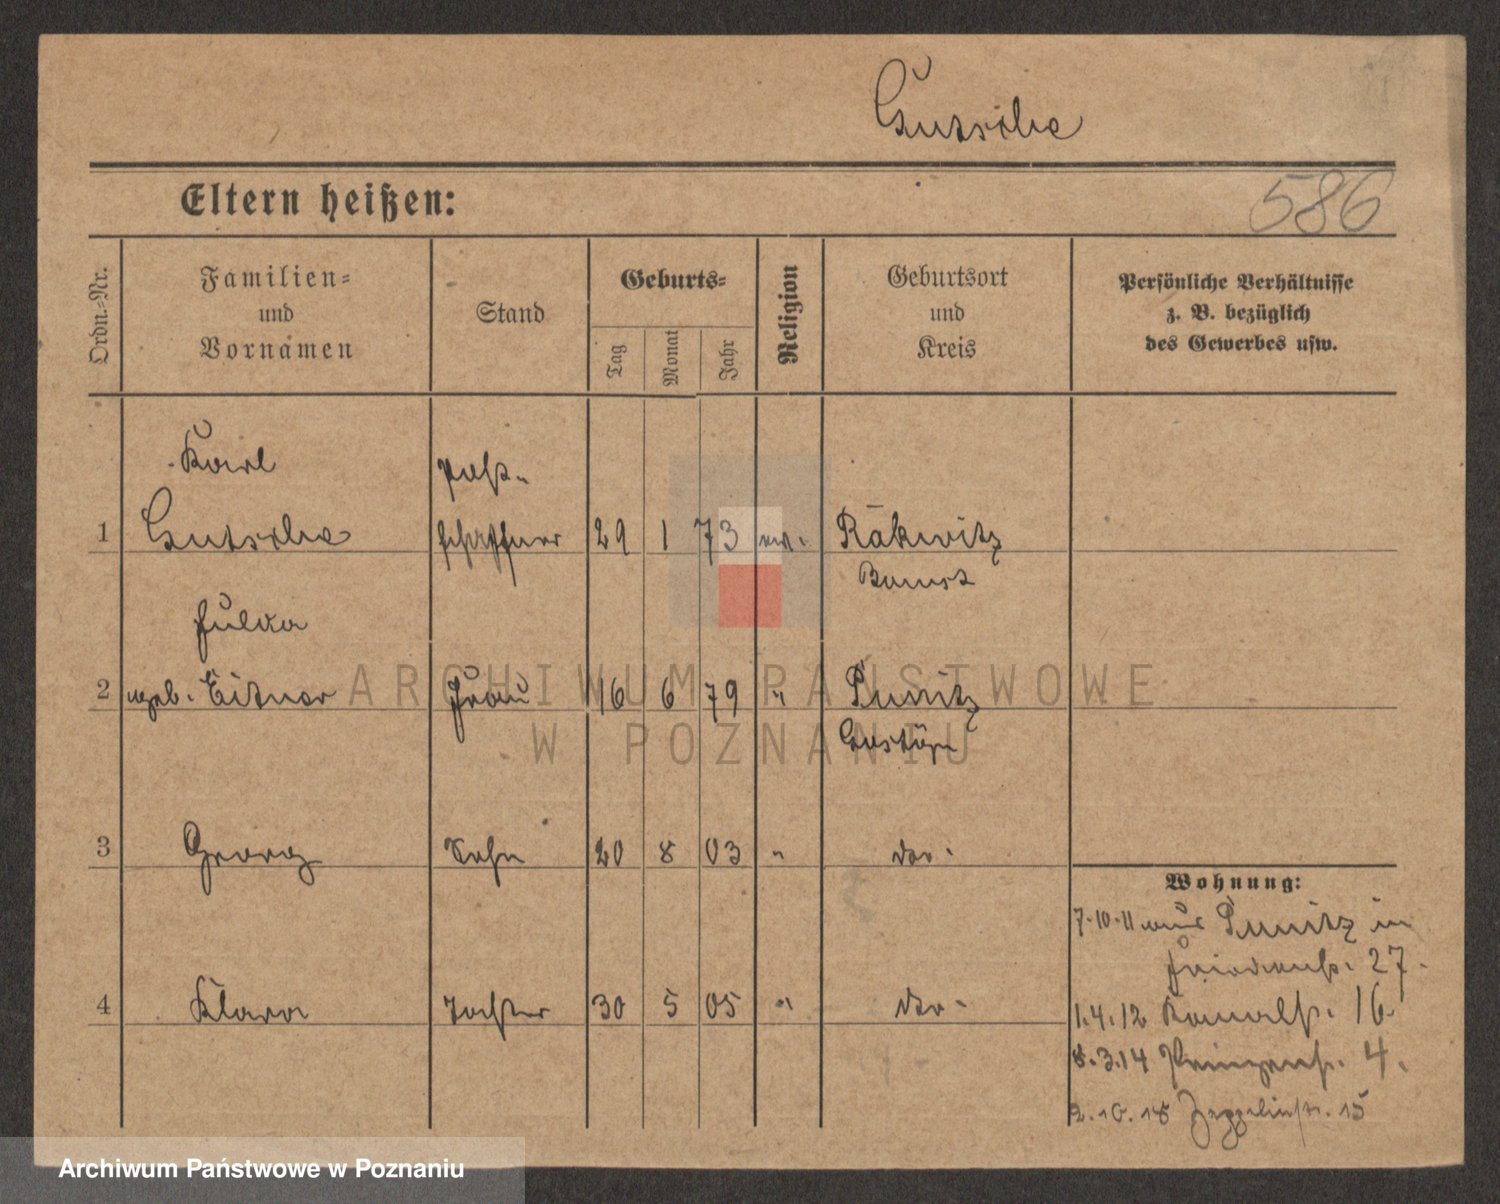 Gutsche
Eltern heißen:
586
Ordn.-Nr.
Familien-
und
Vornamen
Stand
Geburts-
Tag
Monat
Jahr
Religion
Geburtsort
und
Kreis
Persönliche Verhältnisse
z. B. bezüglich
des Gewerbes usw.
Karl
Post-
1 Gutsche schaffner 29 1 73 ev. Rakwitz
Bomst
Hulda
2 geb. Eitner Frau 16 6 79 " Punitz
Gostyn
3 Georg Sohn 20 8 03 " do.
Wohnung:
7.10.11 aus Punitz in
Friedenstr. 27.
4 Klara Tochter 30 5 05 " do.
1.4.12 Kanalstr. 16.
8.3.14 Prinzenstr. 4.
2.10.18 Zeppelinstr. 15
ARCHIWUM PAŃSTWOWE
W POZNANIU
Archiwum Państwowe w Poznaniu